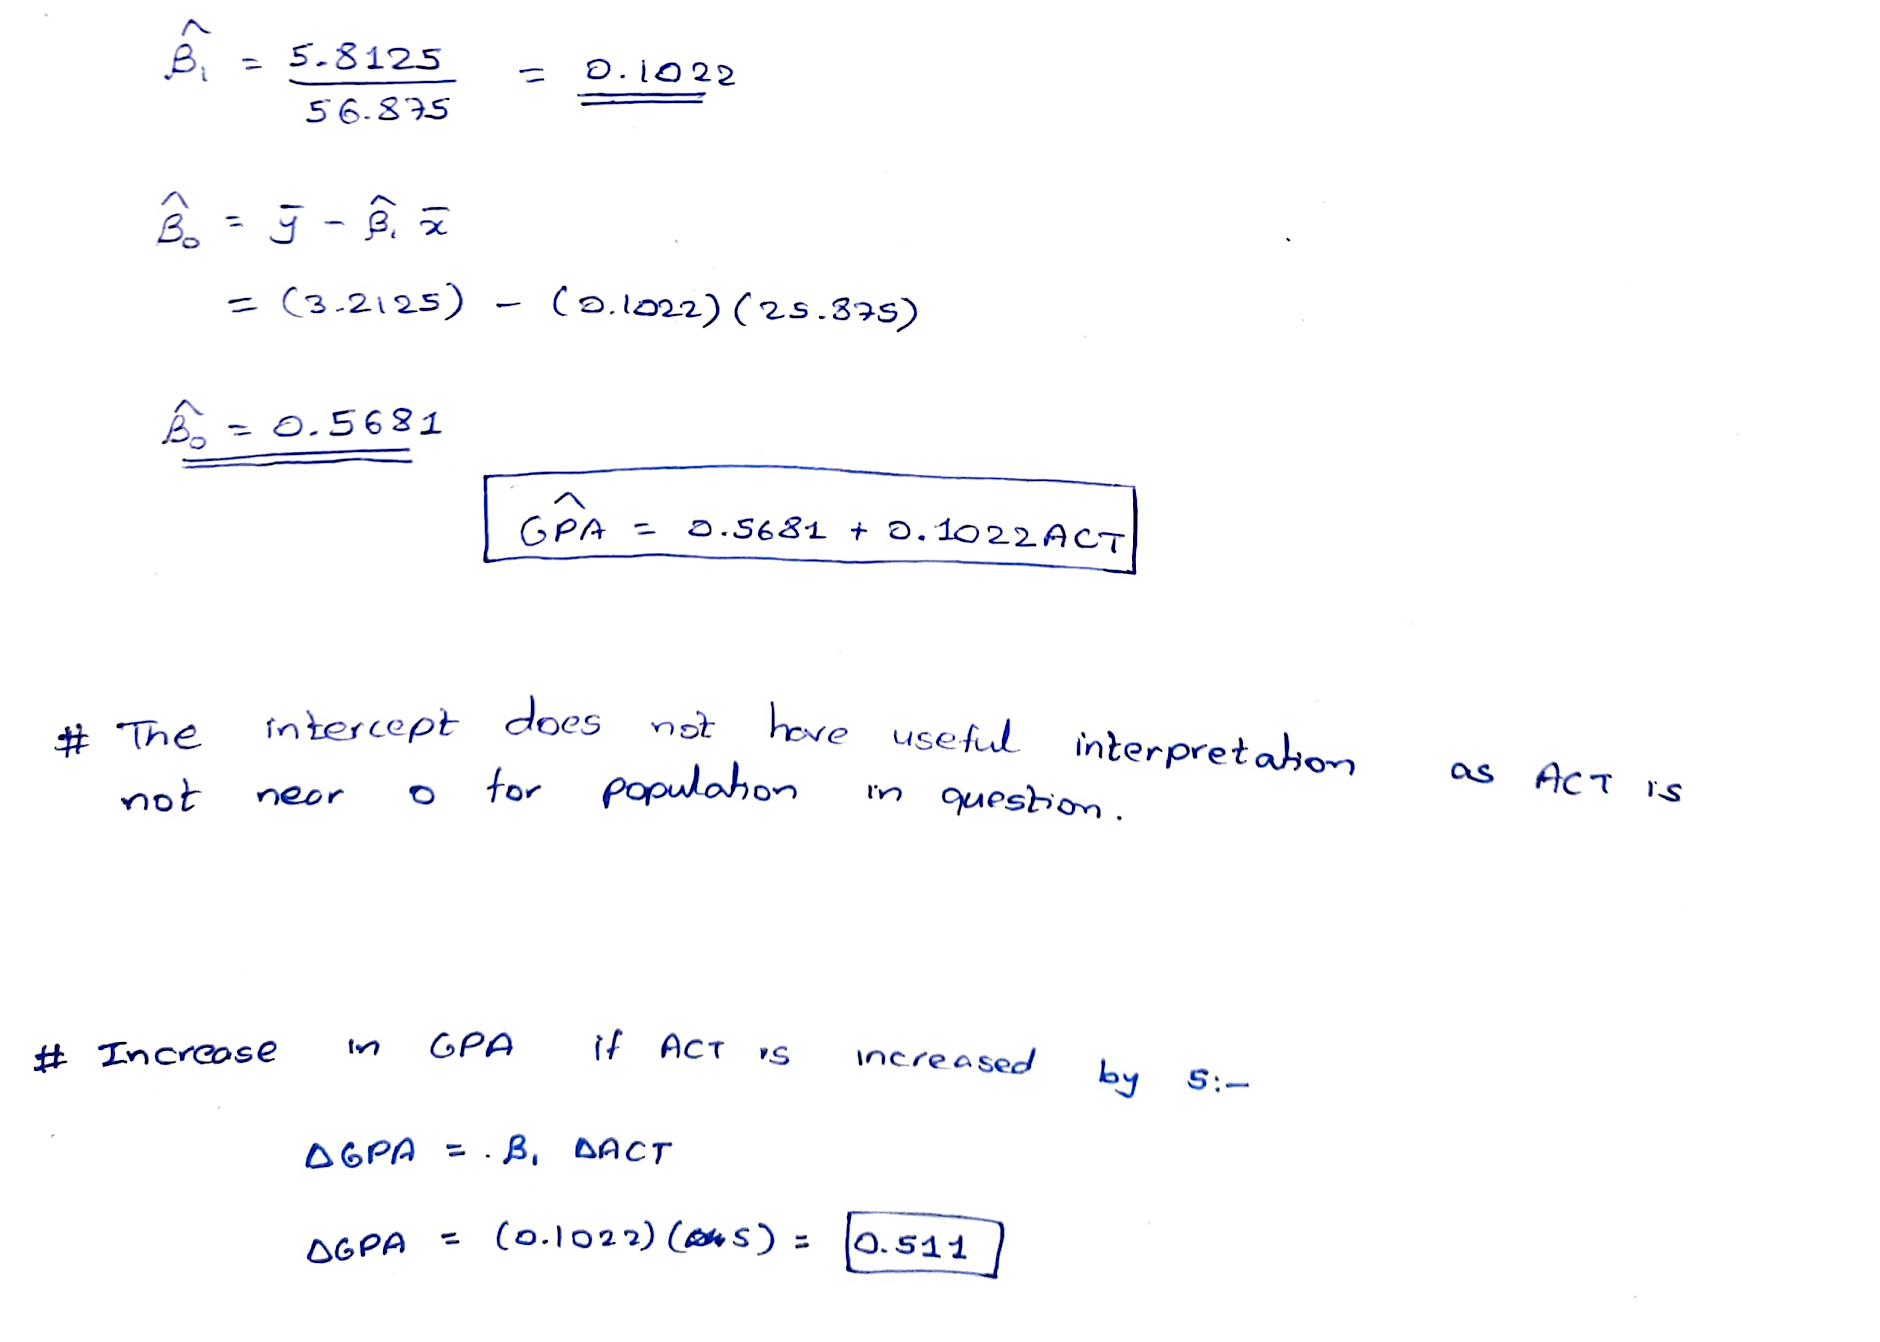 β̂₁ = 5.8125 / 56.875 = 0.1022
β̂₀ = ȳ - β̂₁ x̄
= (3.2125) - (0.1022)(25.875)
β̂₀ = 0.5681
GP̂A = 0.5681 + 0.1022ACT
# The intercept does not have useful interpretation as ACT is
not near 0 for population in question.
# Increase in GPA if ACT is increased by 5:-
ΔGPA = . β₁ ΔACT
ΔGPA = (0.1022) (5) = 0.511